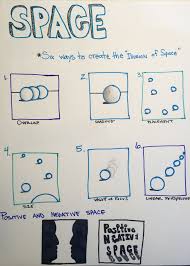 SPACE
*Six ways to create the "Illusion of Space"
1.
2.
3.
OVERLAP
SHADING
PLACEMENT
4.
5.
6.
SIZE
VALUE & FOCUS
LINEAR PERSPECTIVE
POSITIVE AND NEGATIVE SPACE
Positive
NEGATIVE
SPACE